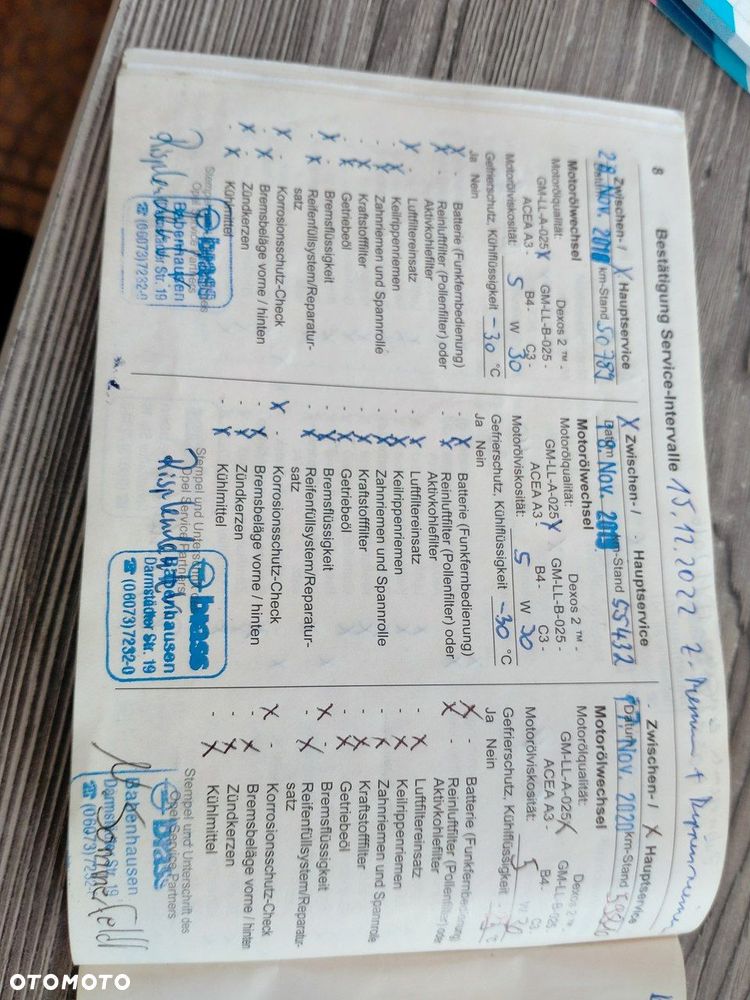 8
Bestätigung Service-Intervalle 15.12.2022
Zwischen- / X Hauptservice
28. Nov. 2018 km-Stand 50789
Motorölwechsel
Motorölqualität: Dexos 2 ™ -
GM-LL-A-025 X GM-LL-B-025 -
ACEA A3 - B4 - C3 -
Motorölviskosität: 5 W 30
Gefrierschutz, Kühlflüssigkeit -30 °C
Ja Nein
X - Batterie (Funkfernbedienung)
X - Reinluftfilter (Pollenfilter) oder
Aktivkohlefilter
X - Luftfiltereinsatz
- X Keilrippenriemen
- X Zahnriemen und Spannrolle
- X Kraftstofffilter
- X Getriebeöl
X - Bremsflüssigkeit
- X Reifenfüllsystem/Reparatur-
satz
X - Korrosionsschutz-Check
- X Bremsbeläge vorne / hinten
X - Zündkerzen
- X Kühlmittel
brass
Babenhausen
Str. 19
☎ (06073)7232-0
X Zwischen- / - Hauptservice
Datum 18. Nov. 2019 km-Stand 55432
Motorölwechsel
Motorölqualität: Dexos 2 ™ -
GM-LL-A-025 X GM-LL-B-025 -
ACEA A3 - B4 - C3 -
Motorölviskosität: 5 W 30
Gefrierschutz, Kühlflüssigkeit -30 °C
Ja Nein
- X Batterie (Funkfernbedienung)
- X Reinluftfilter (Pollenfilter) oder
Aktivkohlefilter
- X Luftfiltereinsatz
- X Keilrippenriemen
- X Zahnriemen und Spannrolle
- X Kraftstofffilter
- X Getriebeöl
- X Bremsflüssigkeit
- X Reifenfüllsystem/Reparatur-
satz
X - Korrosionsschutz-Check
- X Bremsbeläge vorne / hinten
- X Zündkerzen
- X Kühlmittel
Stempel und
Opel Service Partners
brass
Babenhausen
Darmstädter Str. 19
☎ (06073)7232-0
- Zwischen- / X Hauptservice
Datum 17. Nov. 2020 km-Stand
Motorölwechsel
Motorölqualität: Dexos 2 ™ -
GM-LL-A-025 X GM-LL-B-025 -
ACEA A3 - B4 - C3 -
Motorölviskosität: 5 W 30
Gefrierschutz, Kühlflüssigkeit
Ja Nein
X - Batterie (Funkfernbedienung)
X - Reinluftfilter (Pollenfilter) oder
Aktivkohlefilter
- X Luftfiltereinsatz
- X Keilrippenriemen
- X Zahnriemen und Spannrolle
- X Kraftstofffilter
- X Getriebeöl
X - Bremsflüssigkeit
- X Reifenfüllsystem/Reparatur-
satz
X - Korrosionsschutz-Check
- X Bremsbeläge vorne / hinten
- X Zündkerzen
- X Kühlmittel
Stempel und Unterschrift des
Opel Service Partners
brass
Babenhausen
Str. 19
☎ (06073)7232-0
OTOMOTO